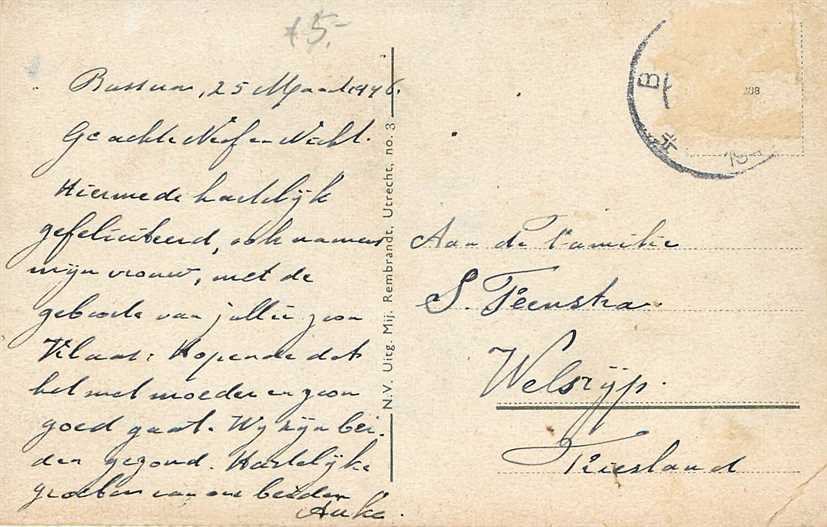 £5.-
Bussum, 25 Maart 1946.
Geachte Neef en Nicht.
Hiermede hartelijk
gefeliciteerd, ook namens
mijn vrouw, met de
geboorte van jullie zoon
Klaas. Hopende dat
het met moeder en zoon
goed gaat. Wij zijn bei-
den gezond. Hartelijke
groeten van ons beiden
Anke.
N.V. Uitg. Mij. Rembrandt, Utrecht, no. 3
B
Aan de Familie
S. Feenstra.
Welsrijp.
Friesland